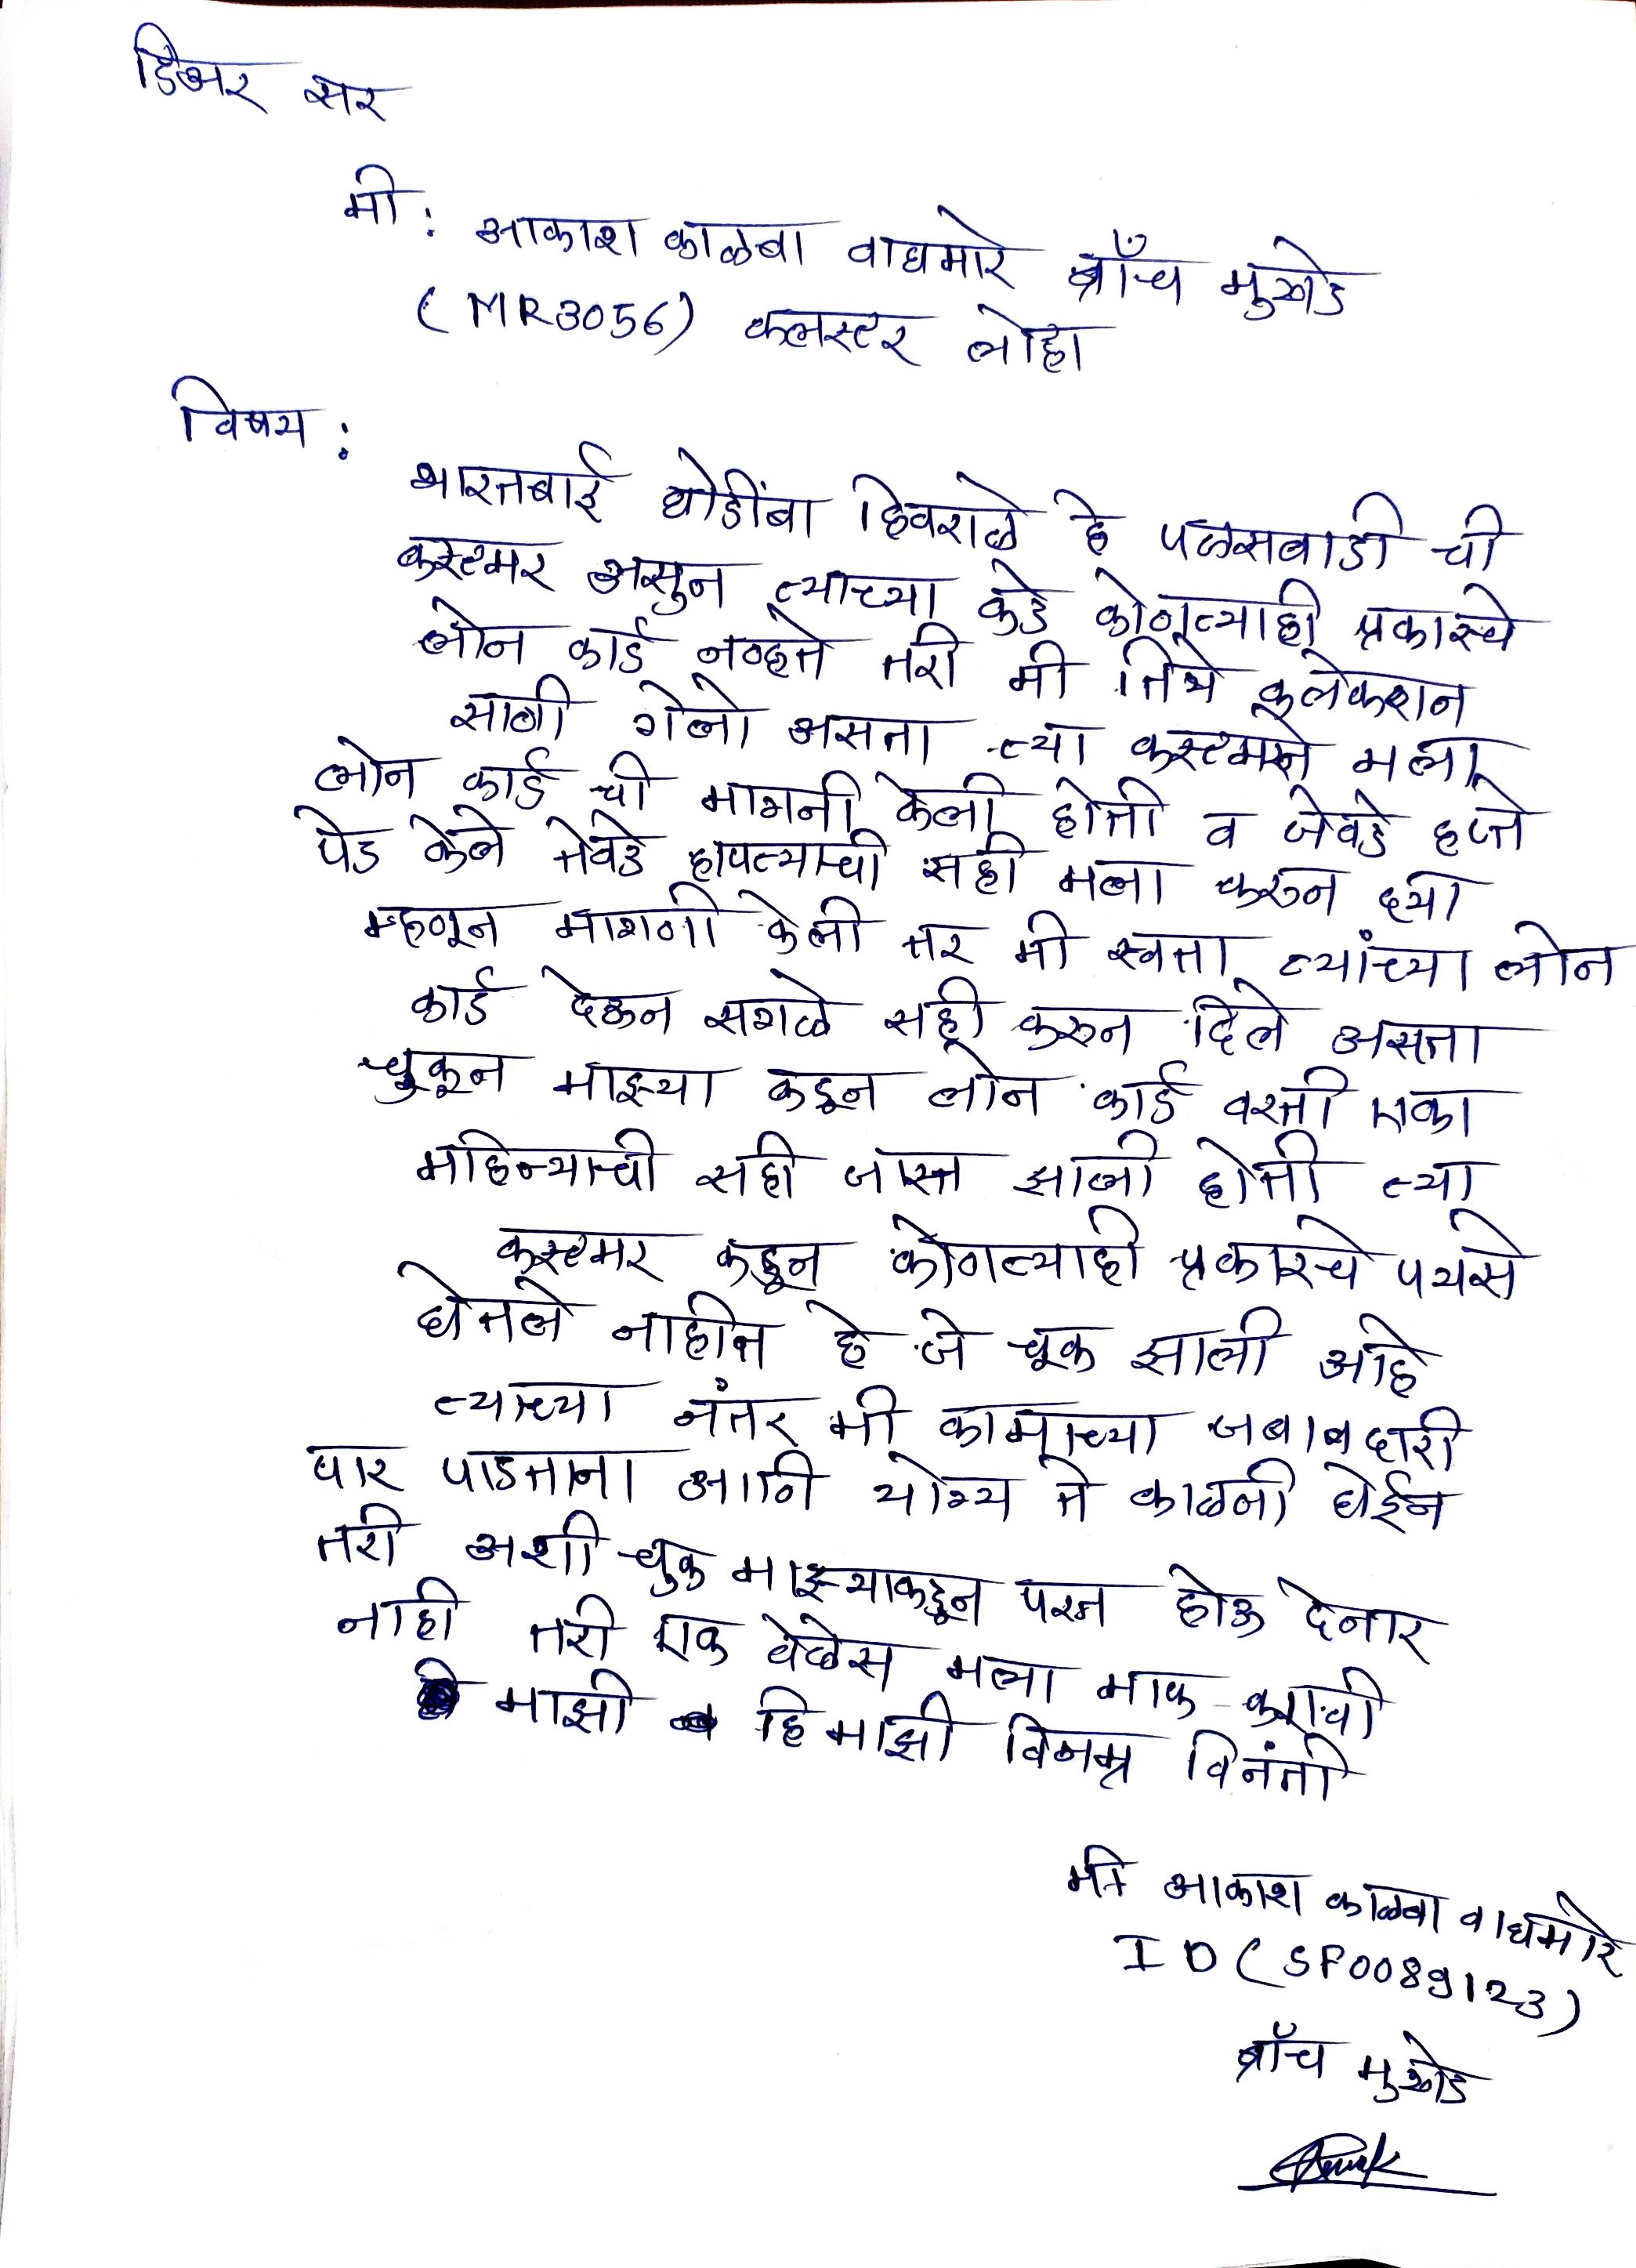 डिअर सर
मी : आकाश काळबा वाघमारे ब्राँच मुखेड
(MR3056) कलस्टर लोहा
विषय :
भारतबाई धोडींबा हिवराळे हे पळसवाडी ची
कस्टमर असुन त्याच्या कडे कोणत्याही प्रकारचे
लोन कार्ड नव्हते तरी मी तिथे कुलेकशन
साठी गेलो असता त्या कस्टमरने मला
लोन कार्ड ची मागनी केली होती व जेवढे हप्ते
पेड केले तेवढे हापत्याची सही मला करुन द्या
म्हणून मागणी केली तर मी स्वता त्यांच्या लोन
कार्ड देऊन सगळे सही करुन दिले असता
चुकून माझ्या कडून लोन कार्ड वरती एका
महिन्याची सही जास्त झाली होती त्या
कस्टमर कडून कोणत्याही प्रकारचे पयसे
घेतले नाहीत हे जे चूक झाली आहे
त्याच्या नंतर मी कामाच्या जबाबदारी
पार पाडताना आणि योग्य ते काळजी घेईन
तरी अशी चुक माझ्याकडून परत होऊ देनार
नाही तरी एक वेळेस मला माफ करावी
माझी हि माझी विनम्र विनंती
मी आकाश काळबा वाघमारे
ID (SF0089123)
ब्राँच मुखेड